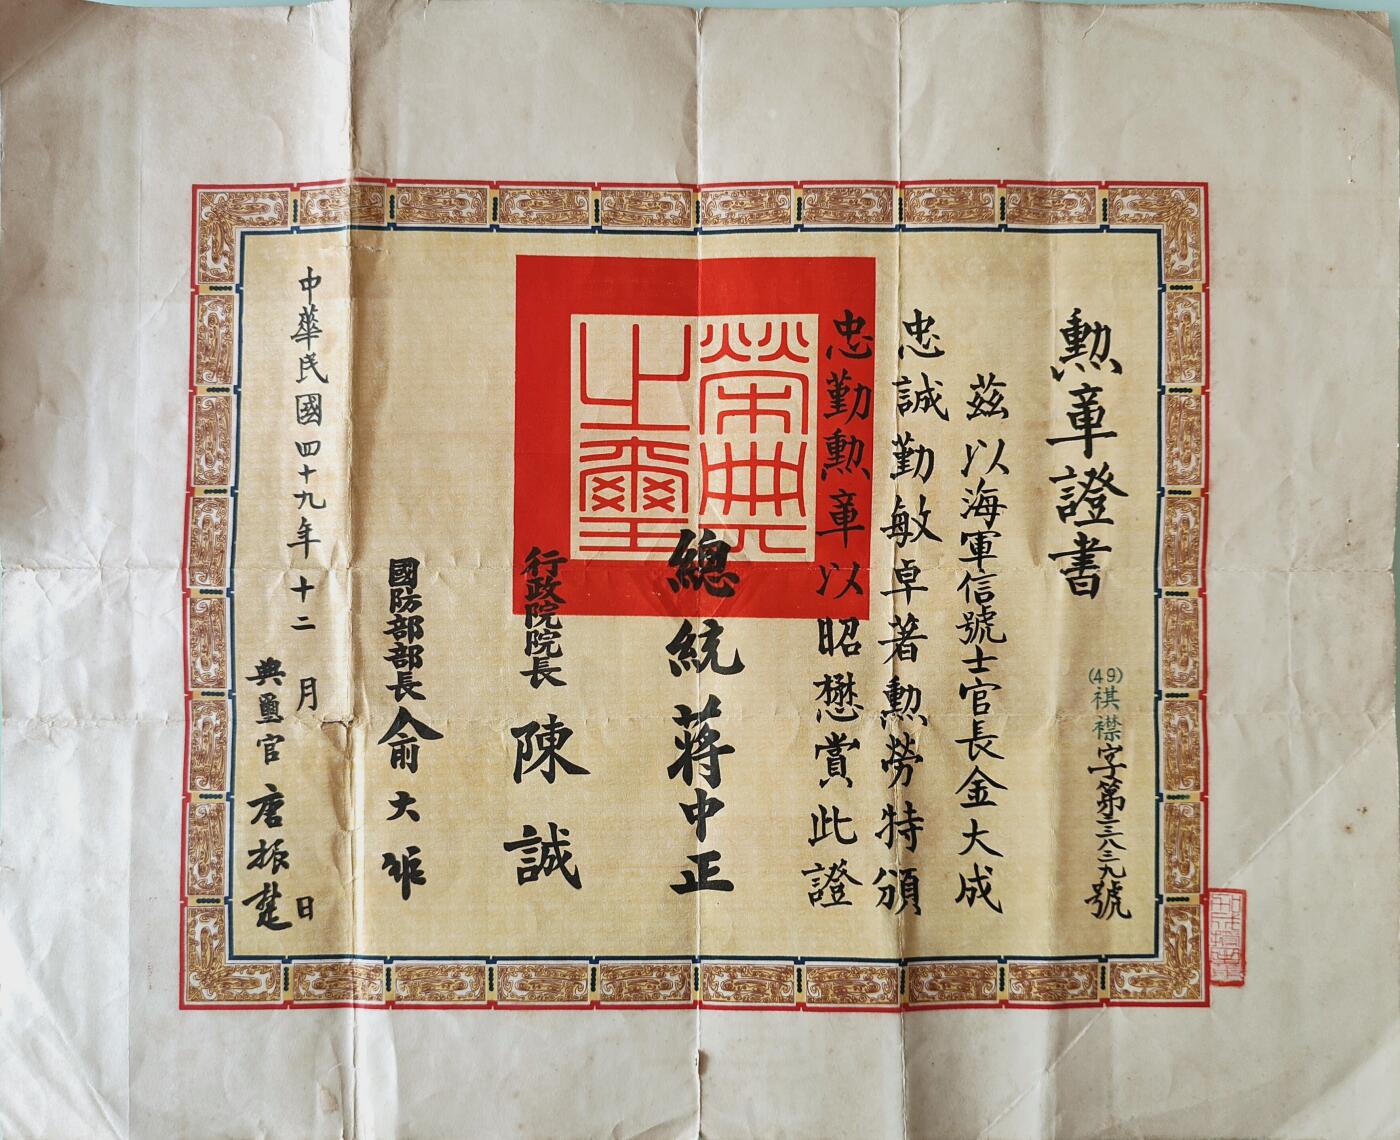 勲章證書
(49)祺襟字第三三八三九號
茲以海軍信號士官長金大成
忠誠勤敏卓著勲勞特頒
忠勤勲章以昭懋賞此證
榮典之璽
總統蔣中正
行政院院長陳誠
國防部部長俞大維
中華民國四十九年十二月日
典璽官唐振楚